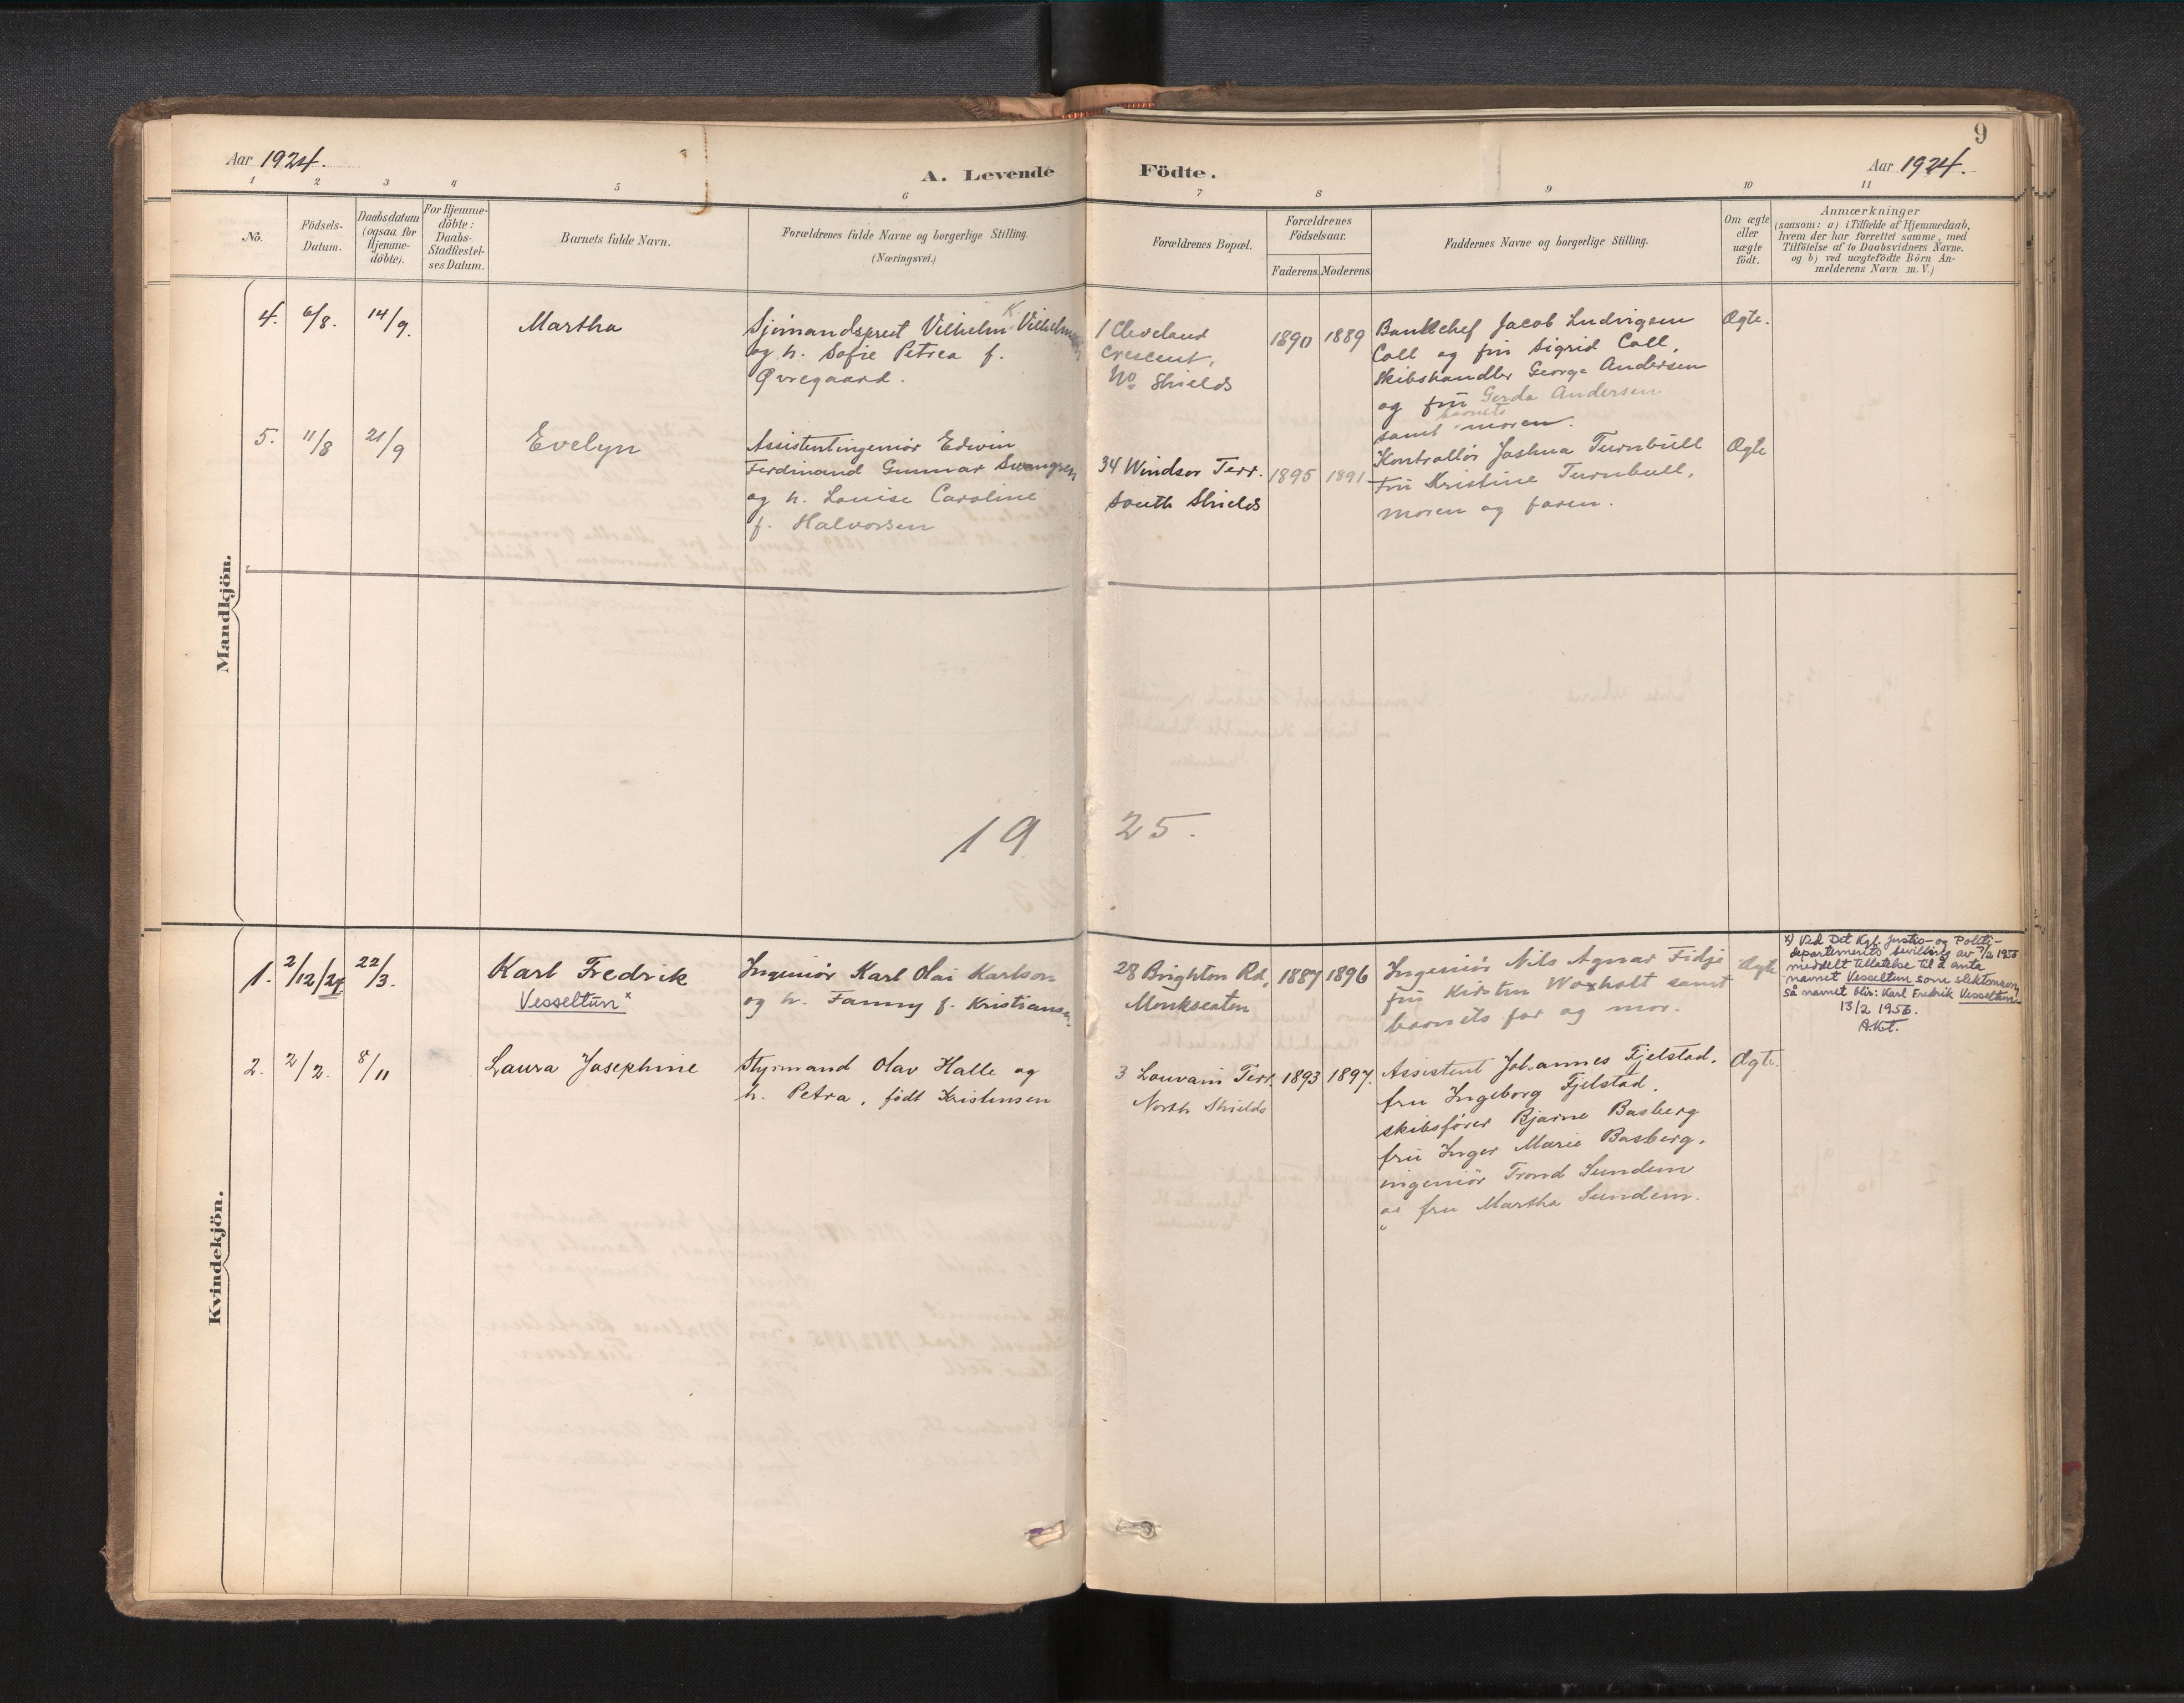 Aar 1924.
A. Levende Födte.
9
Aar 1924.
1 2 3 4 5 6 7 8 9 10 11
No.
Födsels-
Datum.
Daabsdatum
(ogsaa for
Hjemme-
döbte).
For Hjemme-
döbte:
Daabs-
Stadfæstel-
ses Datum.
Barnets fulde Navn.
Forældrenes fulde Navne og borgerlige Stilling.
(Næringsvei.)
Forældrenes Bopæl.
Forældrenes
Födselsaar.
Faderens. Moderens.
Faddernes Navne og borgerlige Stilling.
Om ægte
eller
uægte
födt.
Anmærkninger
(saasom: a) i Tilfælde af Hjemmedaab,
hvem der har forrettet samme, med
Tilföielse af to Daabsvidners Navne.
og b) ved uægtefödte Börn An-
melderens Navn m. V.)
Mandkjön.
4. 6/8. 14/9. Martha
Sjömandsprest Vilhelm K. Vilhelmsen
og h. Sofie Petrea f.
Øvregaard.
1 Cleveland
Crescent,
No Shields
1890 1889
Bankchef Jacob Ludvigsen
Coll og frü Sigrid Coll,
Skibshandler George Andersen
og frü Gerda Andersen
samt barnets moren.
Ægte.
5. 11/8 21/9 Evelyn
Assistentingeniör Edwin
Ferdinand Gunnar Swangren
og h. Louise Caroline
f. Halvorsen
34 Windsor Terr.
South Shields
1895 1891
Kontrollör Joshua Turnbüll
Frü Kristine Turnbull,
moren og faren.
Ægte
19 25.
Kvindekjön.
1. 2/12/21 22/3. Karl Fredrik
Vesseltun x
Ingeniör Karl Olai Karlson
og h. Fanny f. Kristiansen.
28 Brighton Rd,
Monkseaton
1887 1896
Ingeniör Nils Agnar Fidje
frü Kirsten Woxholt samt
barnets far og mor.
Ægte
x) Ved Det Kgl. Justis- og Politi-
departements bevilling av 7/2 1956
meddelt tillatelse til å anta
navnet Vesseltun som slektsnavn,
så navnet blir: Karl Fredrik Vesseltun.
13/2 1956.
2. 2/2. 8/11 Laura Josephine
Styrmand Olav Halle og
h. Petra, født Kristensen
3 Louvain Terr.
North Shields
1893 1897.
Assistent Johannes Fjelstad.
fru Ingeborg Fjelstad.
skibsfører Bjarne Basberg
frü Inger Marie Basberg.
ingeniör Trond Sundem
og fru Martha Sundem.
Ægte.